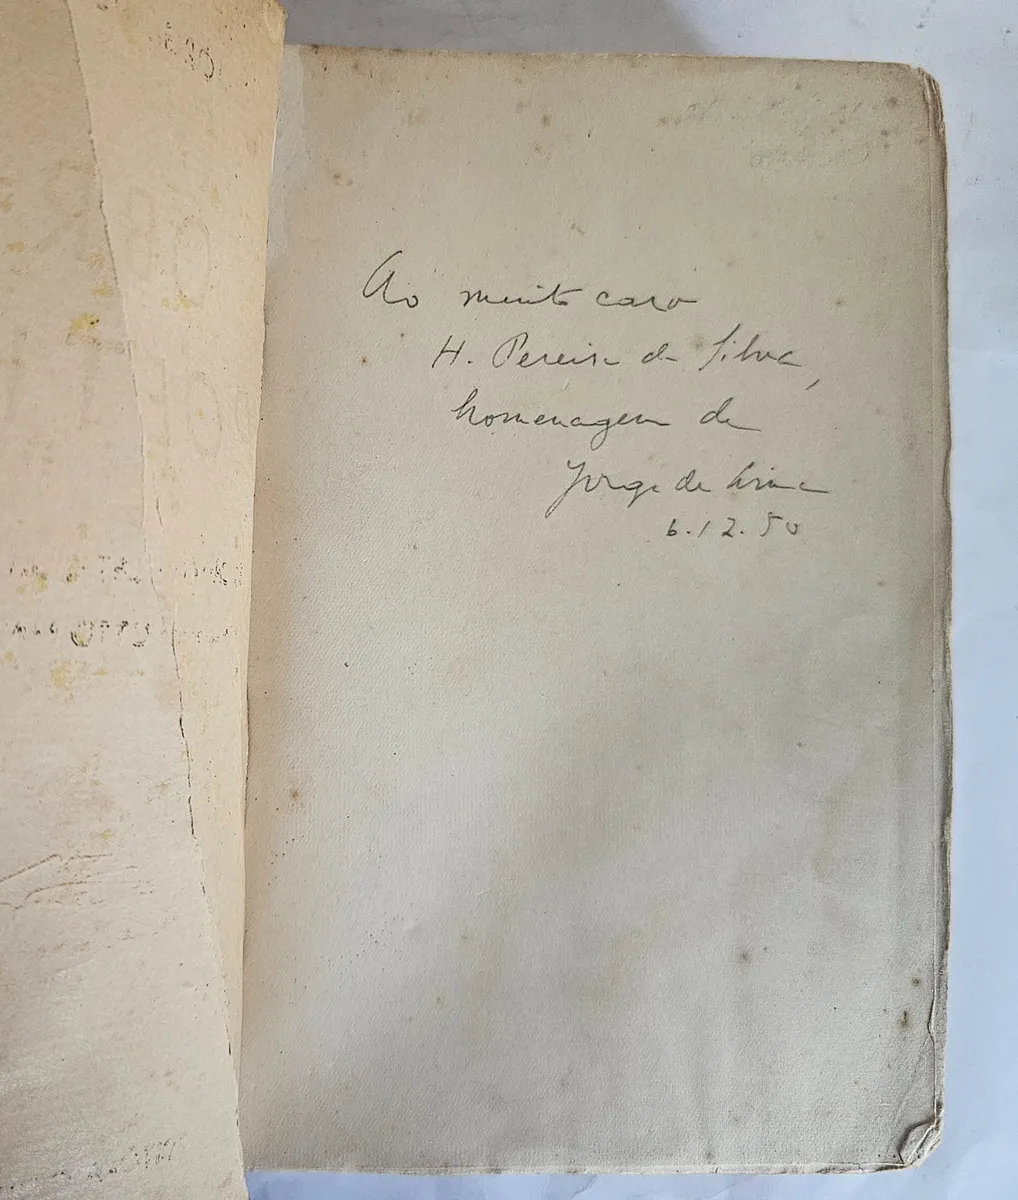 Ao muito caro
H. Pereira da Silva,
homenagem de
Jorge de Lima
6.12.50